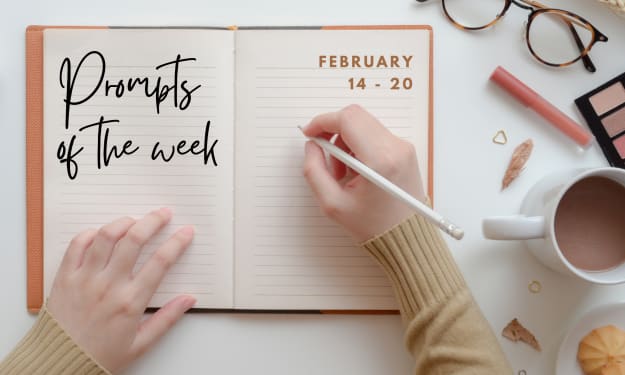 Prompts
of the week
FEBRUARY
14 - 20